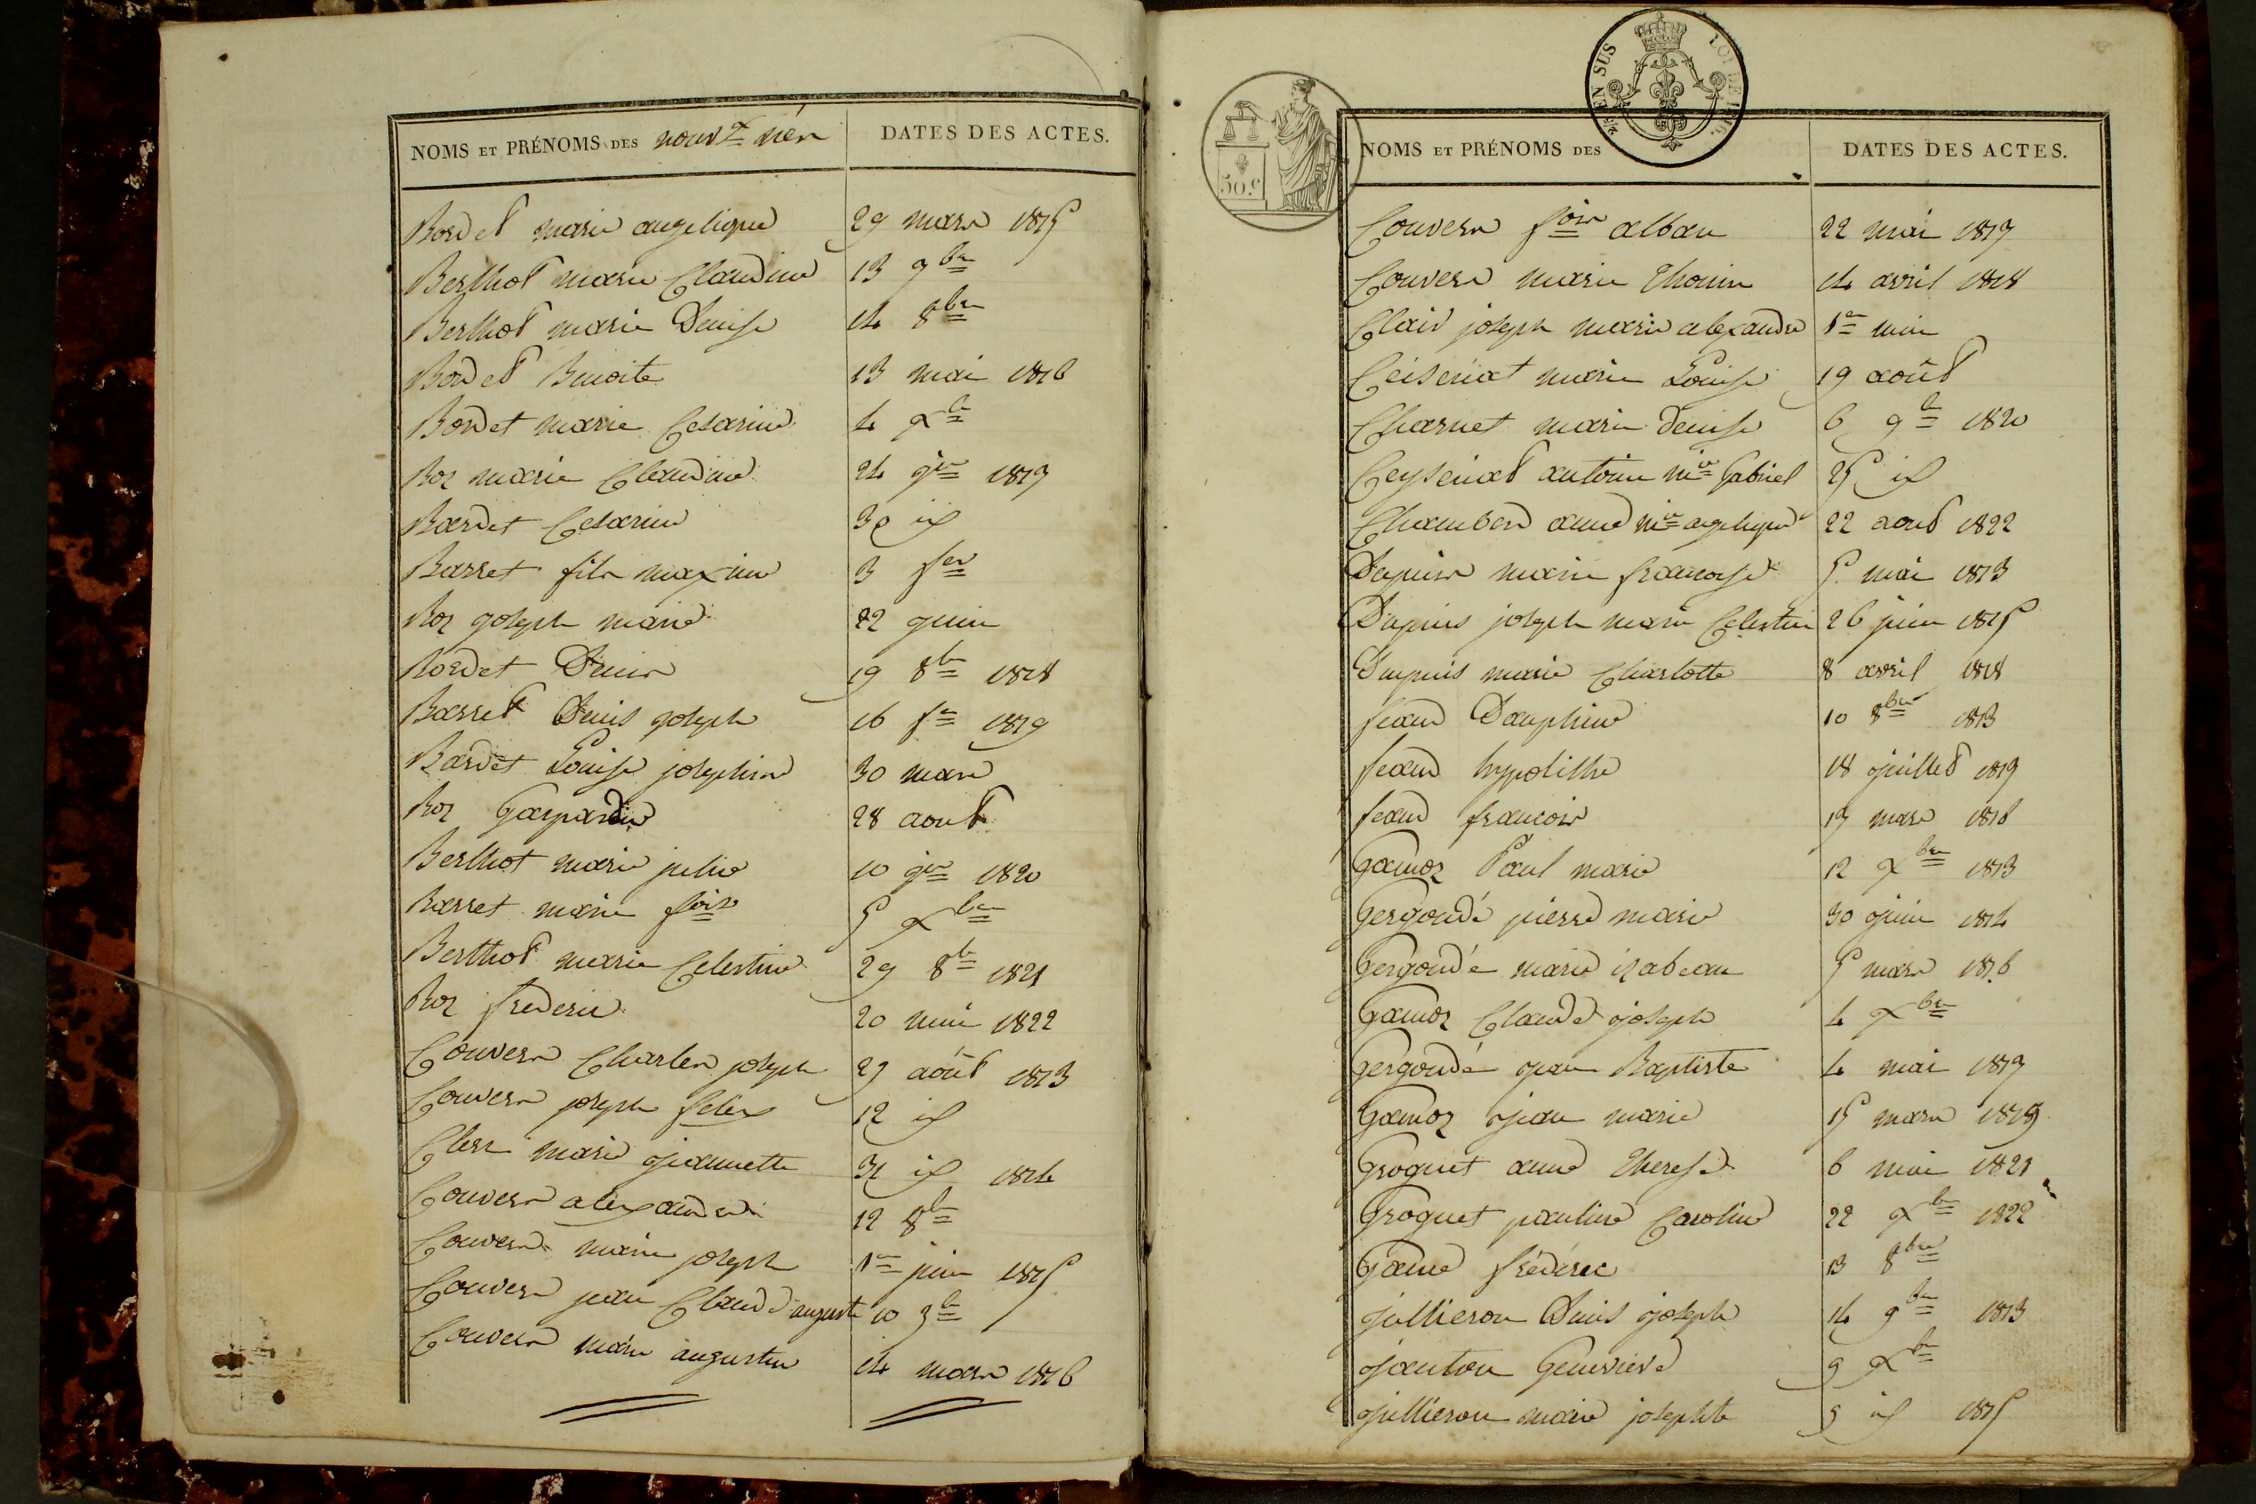 NOMS ET PRÉNOMS DES nouvx nés
DATES DES ACTES.
Bordet marie angelique 29 mars 1815
Berthot marie Claudine 13 9bre
Berthot marie Denise 14 8bre
Bordet Benoite 13 mai 1816
Bordet marie Cesarine 4 Xbre
Roz marie Claudine 24 jer 1817
Bardet Cesarine 30 id
Basset fils maxime 3 fer
Roz joseph marie 22 juin
Bordet Denis 19 8bre 1818
Basset Denis joseph 16 fer 1819
Bardet Louise josephine 30 mars
Roz Gaspardine 28 aout
Berthot marie julie 10 jer 1820
Basset marie foise 5 Xbre
Berthot marie Celestine 29 8bre 1821
Roz frederic 20 mai 1822
Couvers Charles joseph 29 août 1813
Couvers joseph felix 12 id
Clerc marie jeannette 31 id 1814
Couvers alexandre 12 8bre
Couvers marie joseph 1er juin 1815
Couvers jean Claude auguste 10 9bre
Couvers marie augustin 14 mars 1816
EN SUS
LOI DE 1816.
50.c
NOMS ET PRÉNOMS DES
DATES DES ACTES.
Couvers fois alban 22 mai 1817
Couvers marie 14 avril 1818
Clair joseph marie alexandre 1er mai
Ceisériat marie Louise 19 août
Charnet marie denise 6 9bre 1820
Ceyseriat antoine mie Gabriel 25 id
Chambard anne mie angelique 22 aout 1822
Dupuis marie francoise 5 mai 1813
Dupuis joseph marie Celestin 26 juin 1815
Dupuis marie Charlotte 8 avril 1818
feaud Dauphine 10 8bre 1813
feaud hypolithe 18 juillet 1819
feaud francois 17 mars 1816
Gamoz Paul marie 12 Xbre 1813
Gergondé pierre marie 30 juin 1814
Gergondé marie izabeau 5 mars 1816
Gamoz Claude joseph 4 Xbre
Gergondé jean Baptiste 4 mai 1817
Gamoz jean marie 15 mars 1819
Groguet anne Therese 6 mai 1821
Groguet pauline Caroline 22 Xbre 1822
frédéric 13 8bre
jullieron Denis joseph 14 9bre 1813
janton Genevieve 9 Xbre
jullieron marie josephte 5 id 1815